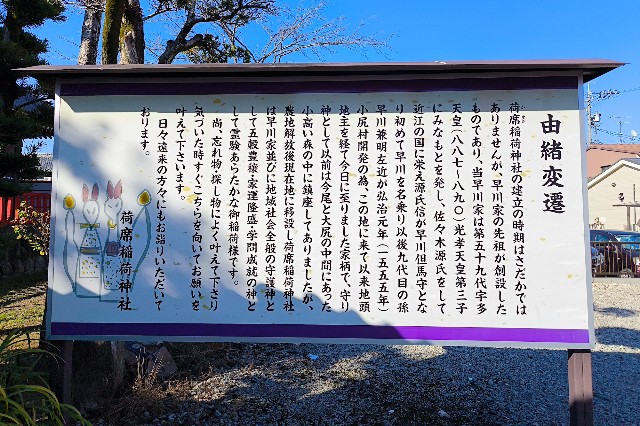 由緒変遷
荷席稲荷神社の建立の時期はさだかでは
ありませんが、早川家の先祖が創設した
ものであり、当早川家は第五十九代宇多
天皇(八八七〜八九〇)光孝天皇第三子
にみなもとを発し、佐々木源氏をして
近江の国に栄え源氏信が早川但馬守とな
り初めて早川を名乗り以後九代目の孫
早川兼明左近が弘治元年(一五五五年)
小尻村開発の為、この地に来て以来地頭
地主を経て今日に至りました家柄で、守り
神として以前は今尾と大尻の中間にあった
小高い森の中に鎮座してありましたが、
農地解放後現在地に移設し荷席稲荷神社
は早川家並びに地域社会全般の守護神と
して五穀豊穣・家運隆盛・学問成就の神と
して霊験あらたかな御稲荷様です。
尚、忘れ物・探し物によく叶えて下さり
気づいた時すぐこちらを向いてお願いを
叶えて下さいます。
日々遠来の方々にもお詣りいただいて
おります。
荷席稲荷神社